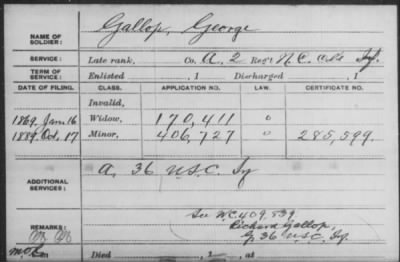 Gallop, George
NAME OF
SOLDIER:
SERVICE: Late rank, Co. A, 2 Reg't N.C. Col'd Inf.
TERM OF
SERVICE: Enlisted , 1 Discharged , 1
DATE OF FILING. CLASS. APPLICATION NO. LAW. CERTIFICATE NO.
Invalid,
1869, Jan. 16 Widow, 170,411 o
1889, Oct. 17 Minor, 406,727 o 285,599.
A, 36 U.S.C. Inf
ADDITIONAL
SERVICES:
See W.C. 409,539
Richard Gallop,
G, 36 U.S.C. Inf.
REMARKS:
Died , 1 , at